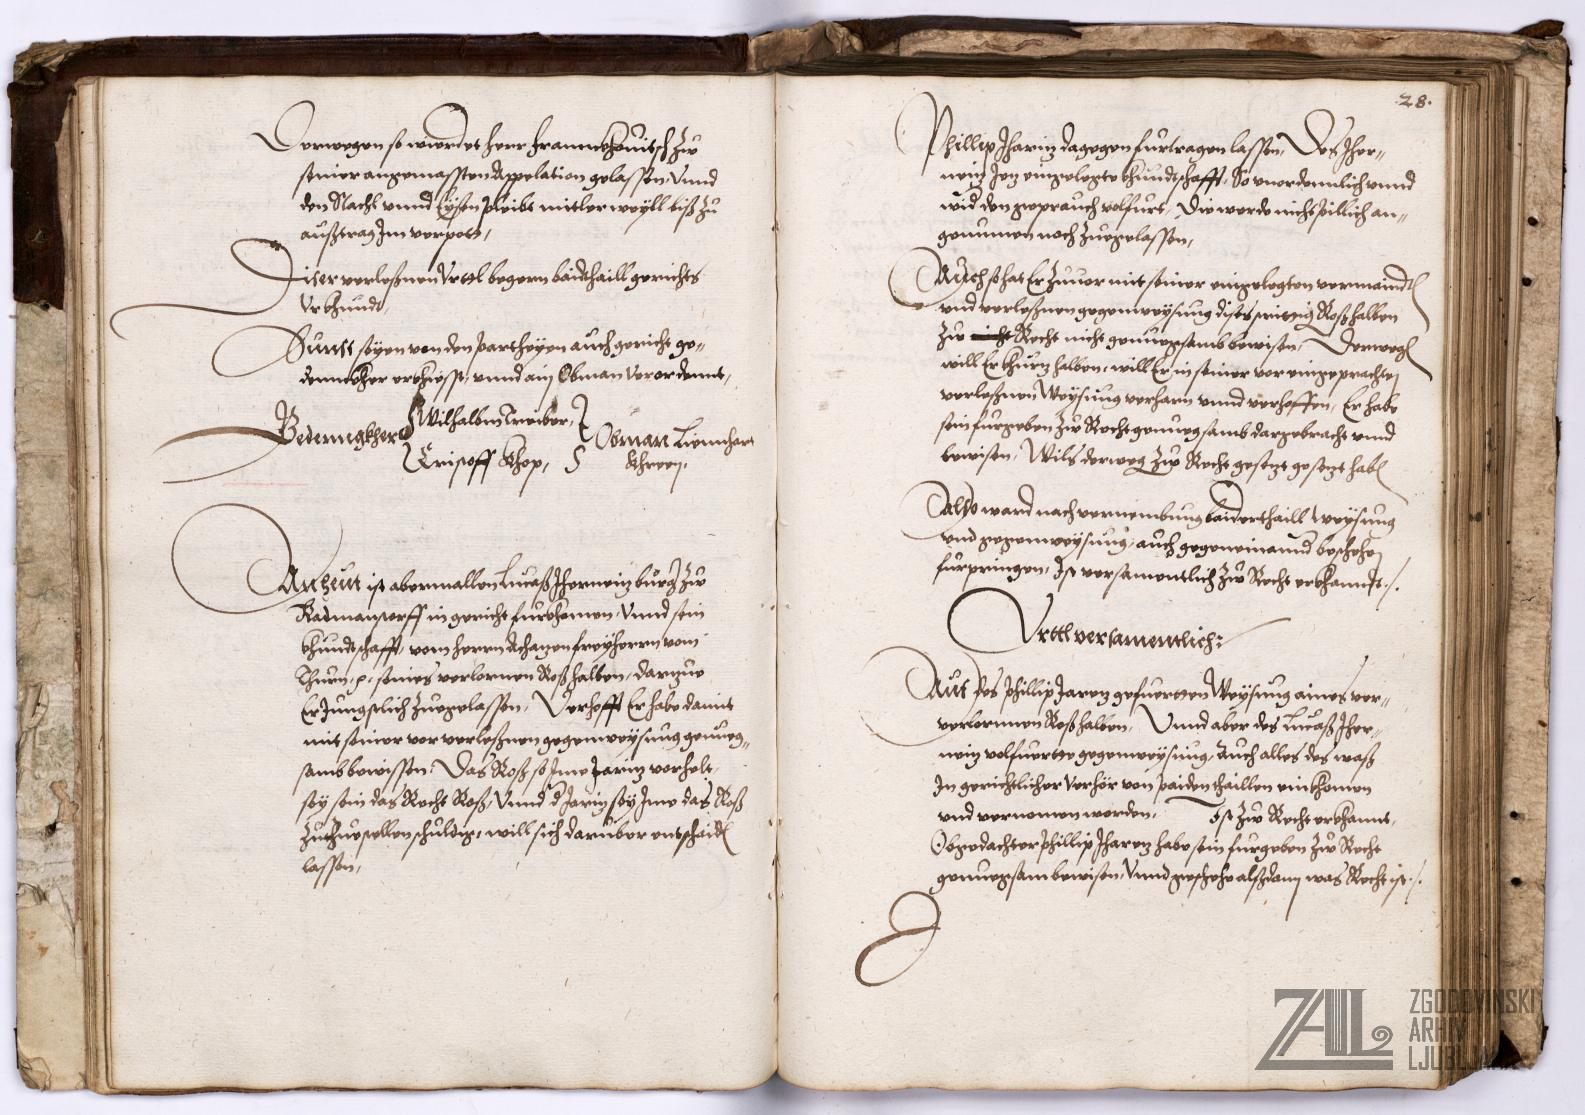 Derwegen so wierdet herr Frannckhouitsch zw
seiner angemassten Appelation gelassen, Vnnd
den Stachl vnnd Eysen pleibt mitler weyll biß zu
außtrag Im verpott,
Diser verleßnen Vrttl begern baidthaill gerichts
Vrkhundt,
Sunst seyen von den partheyen auch gericht ge„
denncker erkhiesst, vnnd ain Obman verordennt,
Wilhalbm Treiber,
Gedenngkher
Cristoff Khop,
Obman Liennhart
Khreen.
An heut ist abermallen Lucaß Jhernein burg Zw
Radmanstorff in gericht furkhomen, Vnnd sein
khundtschafft, vom herrn Achazen freyherrn vom
Thurn, p. seines verlornen Roß halben, darzue
Er Jungstlich zuegelassen, Verhofft Er habe damit
mit seiner vor verleßnen gegenweysung genueg„
samb bewissen, Das Roß so Ime Jarinz verhelt,
sey sein das Recht Roß, Vnnd d Jarinz sey Ime das Roß
Zuezuestellen schuldig, will sich daruber entschaiden
lassen,
28.
Phillip Jharinz dagegen furtragen lassen, Des Jher„
neinz Jez eingelegte khundtschafft, So vnordennlich vnnd
wid den geprauch volfurt, Die werde nicht pillich an„
genumen noch Zuegelassen,
Auch so hat Er Zuuor mit seiner eingelegten vermaindten
vnd verleßnen gegenweysung dises strittig Roß halben
Zw Recht nicht genuegsamb bewisen, Derwegen
will Er khurz halben, will Er in seiner vor eingeprachten
verleßnen Weysung verharn vnnd verhoffen, Er habe
sein furgeben Zw Recht genuegsamb dargebracht vnnd
bewisen, Wils derweg Zw Recht gesetzt gesetzt haben
Also ward nach vernembung baiderthaill weysung
vnd gegenweysung, auch gegeneinannd beschehen
furpringen, Ist versamentlich Zw Recht erkhanndt./.
Vrttl versamentlich:
Auf des Phillip Jarenz gefuertten Weysung aines ver„
verlornnen Roß halben, Vnnd aber des Lucaß Jher„
neinz volfuertte gegenweysung, Auch alles des waß
In gerichtlicher verhör von paiden thaillen einkhomen
vnd vernomen worden, Ist Zw Recht erkhannt,
Obgedachter Phillip Jharenz habe sein furgeben Zw Recht
genuegsam bewisen, Vnnd geschehe alßdann was Recht ist./.
ZAL
ZGODOVINSKI
ARHIV
LJUBLJANA